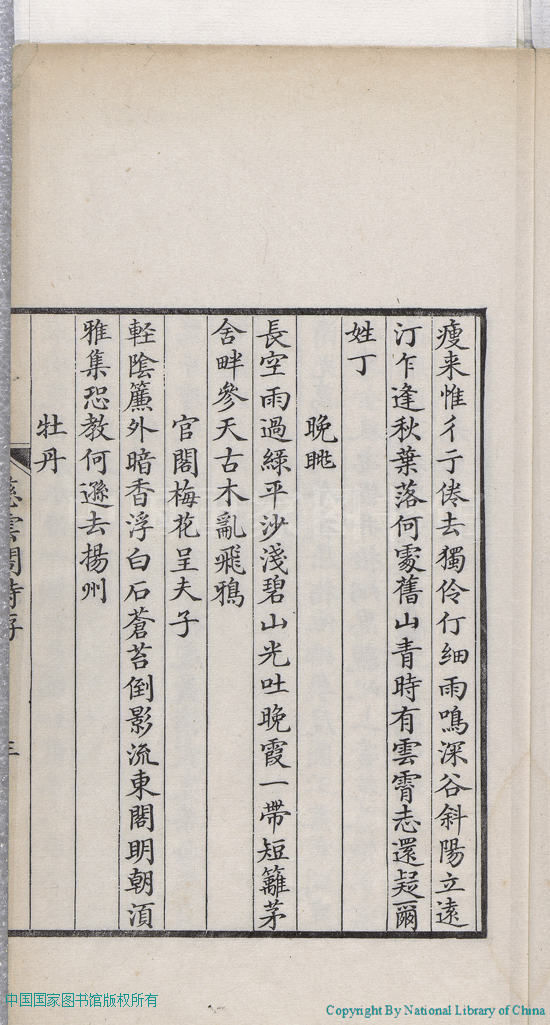 瘦来惟彳亍倦去獨伶仃細雨鳴深谷斜陽立遠
汀乍逢秋葉落何處舊山青時有雲霄志還疑爾
姓丁
晚眺
長空雨過綠平沙淺碧山光吐晚霞一帶短籬茅
舍畔參天古木亂飛鴉
官閣梅花呈夫子
軽陰簾外暗香浮白石蒼苔倒影流東閣明朝湏
雅集恐教何遜去揚州
牡丹
慈雲閣詩存
三
中国国家图书馆版权所有
Copyright By National Library of China